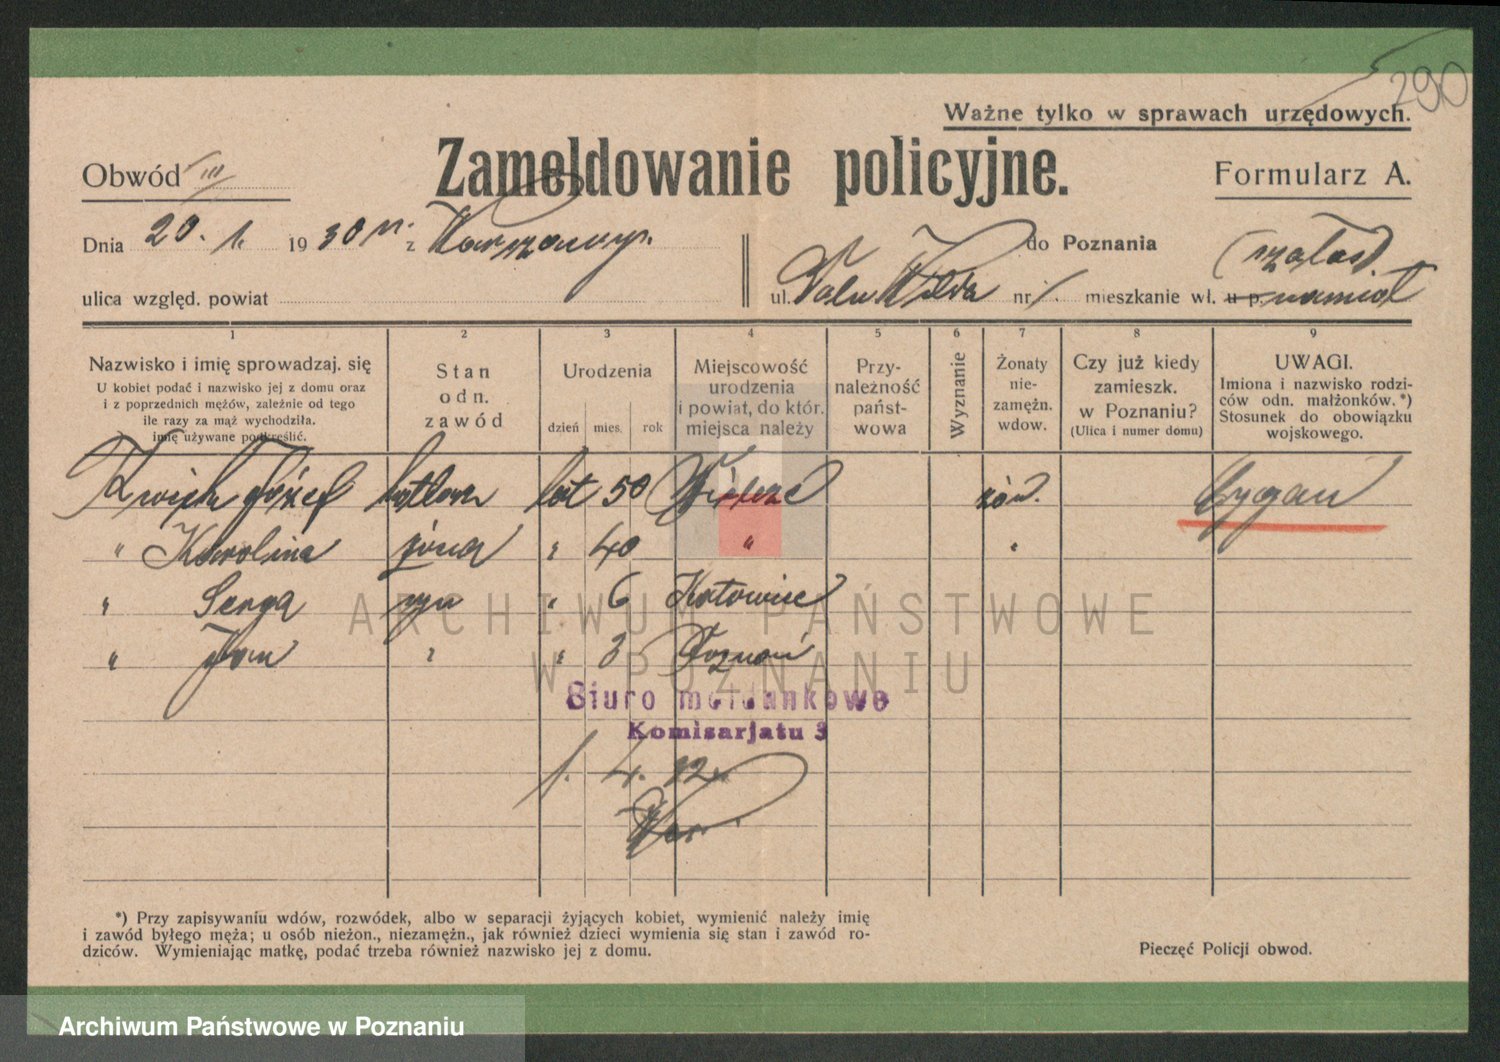 290
Ważne tylko w sprawach urzędowych.
Zameldowanie policyjne.
Obwód III
Formularz A.
Dnia 20. 1. 1930 r. z Warszawy.
do Poznania (szałas)
ulica względ. powiat
ul. Wilda nr 1 mieszkanie wł. u p. namiot
1 2 3 4 5 6 7 8 9
Nazwisko i imię sprowadzaj. się
U kobiet podać i nazwisko jej z domu oraz
i z poprzednich mężów, zależnie od tego
ile razy za mąż wychodziła.
imię używane podkreślić.
Stan
odn.
zawód
Urodzenia
dzień mies. rok
Miejscowość
urodzenia
i powiat, do któr.
miejsca należy
Przy-
należność
państ-
wowa
Wyznanie
Żonaty
nie-
zamężn.
wdow.
Czy już kiedy
zamieszk.
w Poznaniu?
(Ulica i numer domu)
UWAGI.
Imiona i nazwisko rodzi-
ców odn. małżonków.*)
Stosunek do obowiązku
wojskowego.
Kwiek Józef kotlarz lat 50 Kielce Cygan
" Karolina żona " 40 "
" Serga syn " 6 Katowice
" Jan " " 3 Poznań
ARCHIWUM PAŃSTWOWE
W POZNANIU
Biuro meldunkowe
Komisarjatu 3
1. 4. 32.
*) Przy zapisywaniu wdów, rozwódek, albo w separacji żyjących kobiet, wymienić należy imię
i zawód byłego męża; u osób nieżon., niezamężn., jak również dzieci wymienia się stan i zawód ro-
dziców. Wymieniając matkę, podać trzeba również nazwisko jej z domu.
Pieczęć Policji obwod.
Archiwum Państwowe w Poznaniu